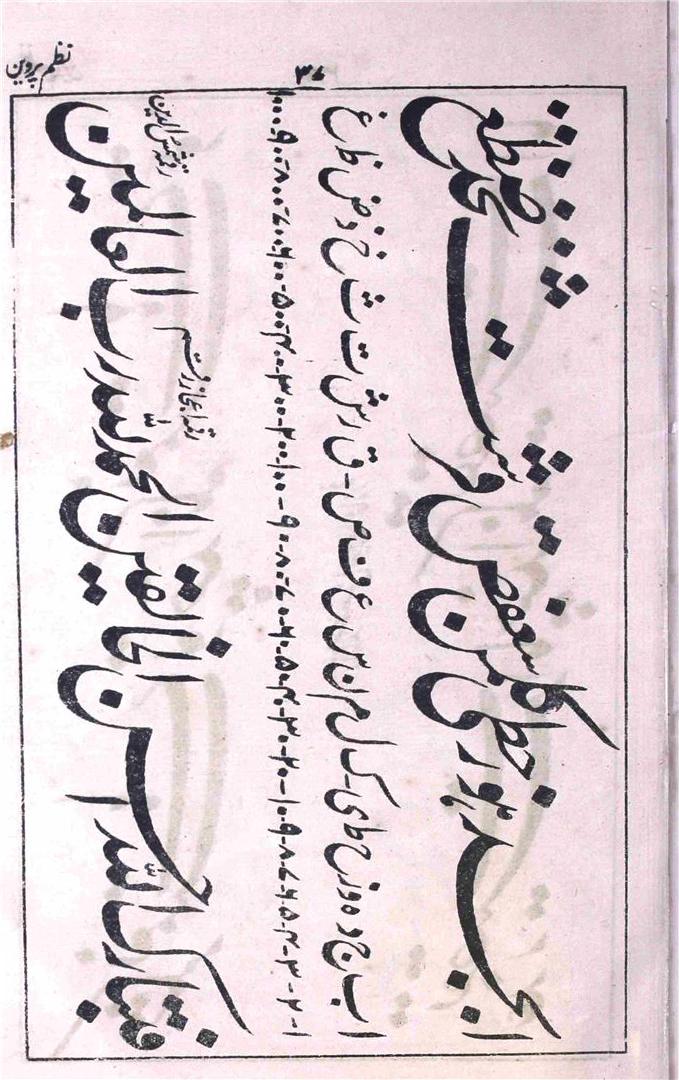 نظم پروین
۳۷
ابجد ہوز حطی کلمن سعفص قرشت ثخذ ضظغ
ا ب ج د ہ و ز ح ط ی ک ل م ن س ع ف ص - ق ر ش ت ث خ ذ ض ظ غ
۱-۲-۳-۴-۵-۶-۷-۸-۹-۱۰-۲۰-۳۰-۴۰-۵۰-۶۰-۷۰-۸۰-۹۰-۱۰۰-۲۰۰-۳۰۰-۴۰۰-۵۰۰-۶۰۰-۷۰۰-۸۰۰-۹۰۰-۱۰۰۰
اعجاز رقم شمس الدین
فتبارک اللہ احسن الخالقین الحمد للہ رب العالمین